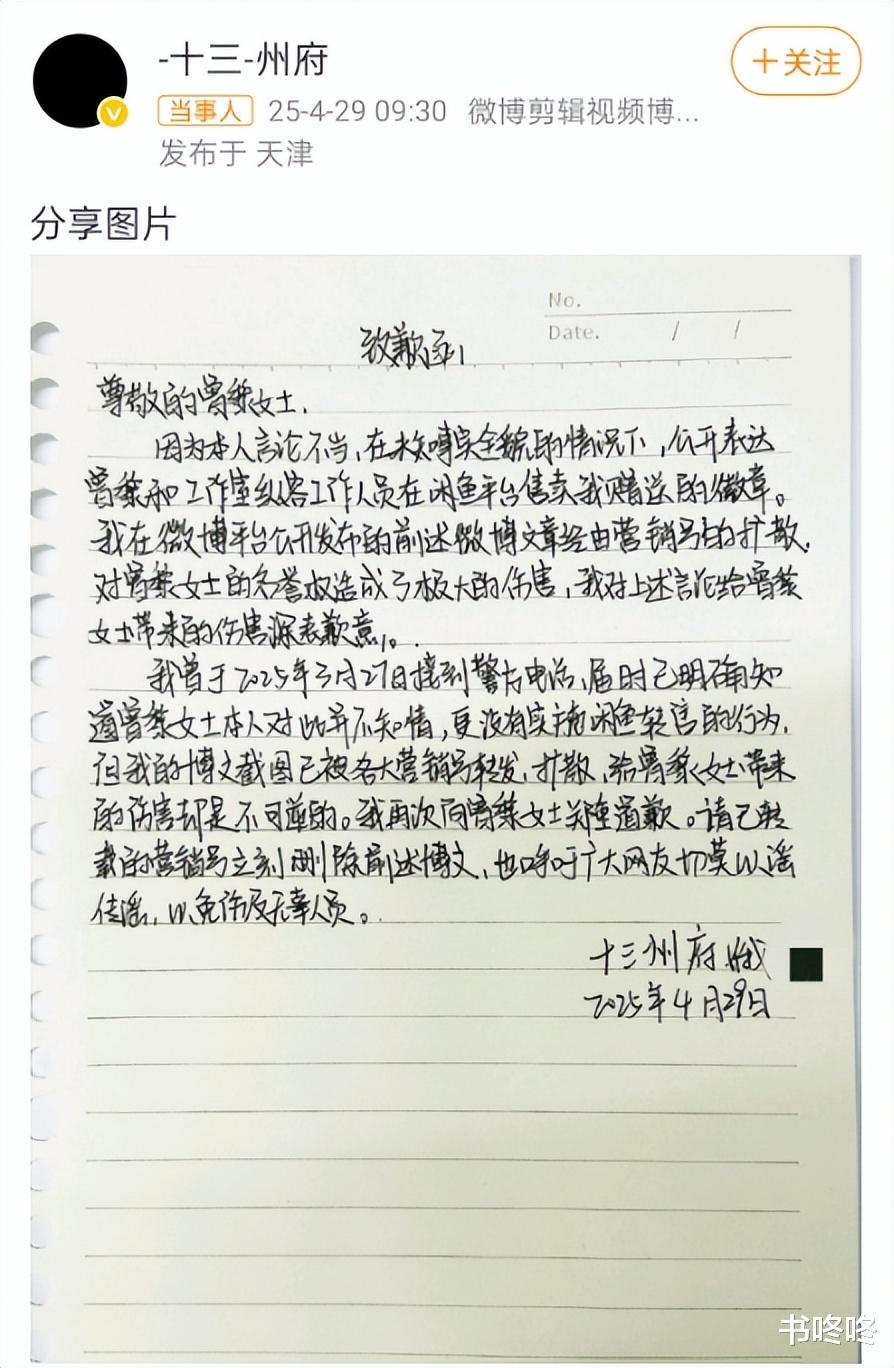 -十三-州府
+关注
当事人 25-4-29 09:30 微博剪辑视频博...
发布于 天津
分享图片
No.
Date. / /
致歉函
尊敬的曾黎女士,
因为本人言论不当,在未知晓完全貌的情况下,公开表达
曾黎和工作室纵容工作人员在闲鱼平台售卖我赠送的徽章。
我在微博平台公开发布的前述微博文章经由营销号的扩散,
对曾黎女士的名誉权造成了极大的伤害,我对上述言论给曾黎
女士带来的伤害深表歉意。
我曾于2025年3月27日接到警方电话,届时已明确知
道曾黎女士本人对此并不知情,更没有实施闲鱼转售的行为,
但我的博文截图已被各大营销号转发,扩散,给曾黎女士带来
的伤害却是不可逆的。我再次向曾黎女士郑重道歉。请已转
载的营销号立刻删除前述博文,也呼吁广大网友切莫以谣
传谣,以免伤及无辜人员。
十三州府
2025年4月29日
书咚咚